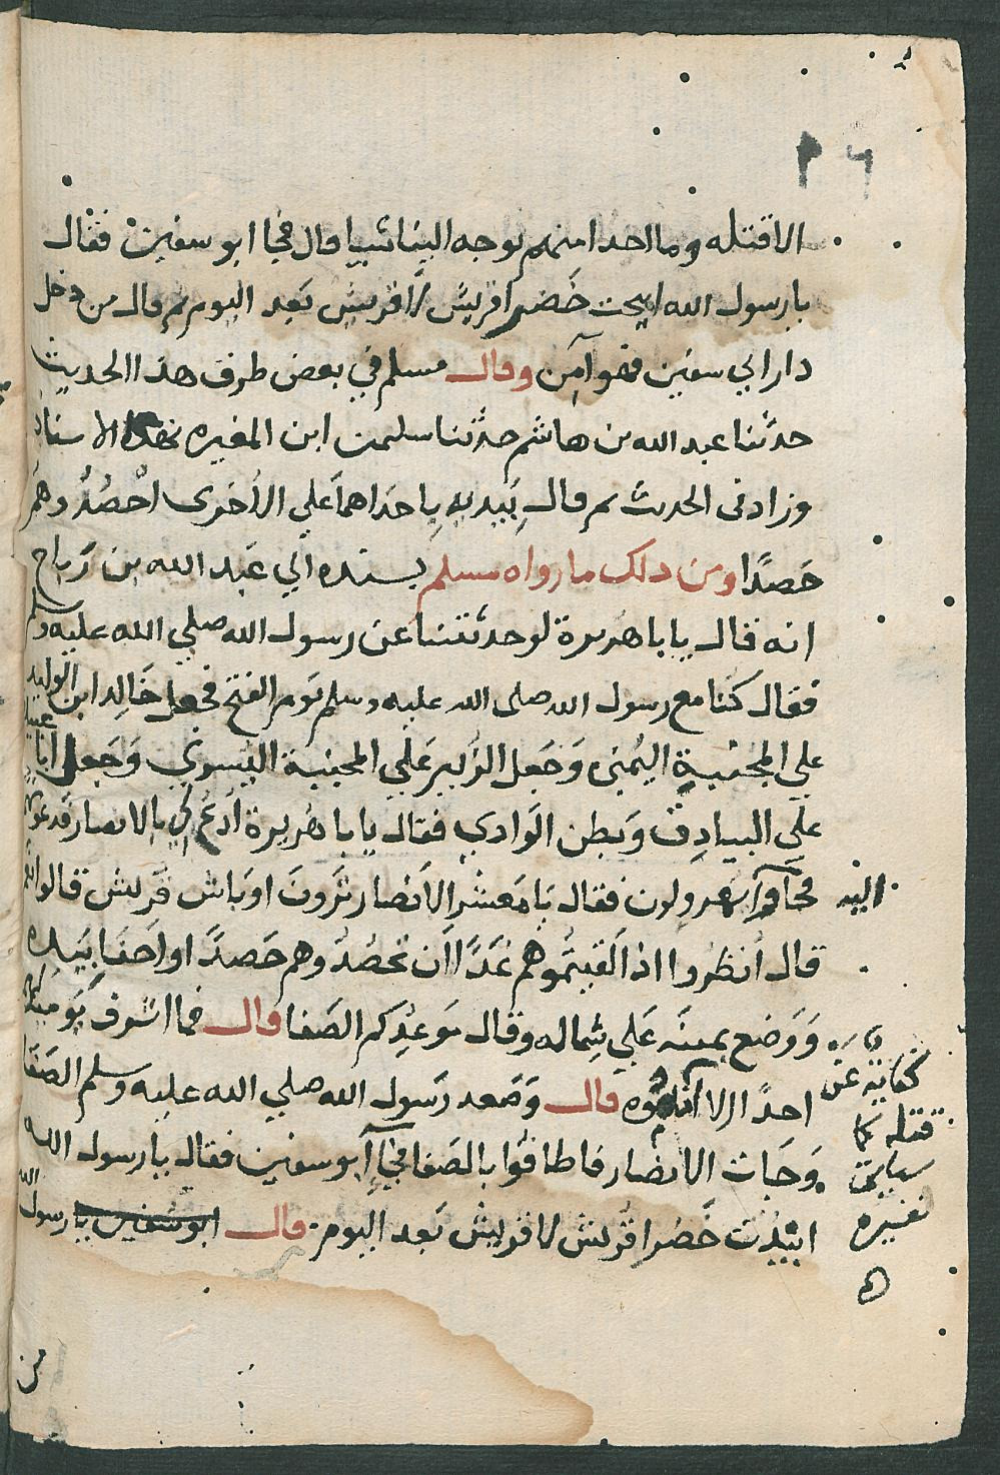 الاقتله وما احدا منهم يوجه الينا شيا قال فجا ابو سفين فقال
يا رسول الله ابيحت خضرا قريش لا قريش بعد اليوم ثم قال من دخل
دار ابي سفين فهو آمن وقال مسلم في بعض طرق هذا الحديث
حدثنا عبد الله بن هاشم حدثنا سليمن ابن المغيره بهذا الاسناد
وزاد في الحديث ثم قال بيديه باحداهما علي الأخرى احصدوهم
حصدا ومن ذلك ما رواه مسلم بسنده الي عبد الله بن رباح
انه قال يابا هريرة لو حدثتنا عن رسول الله صلي الله عليه وسلم
فقال كنا مع رسول الله صلى الله عليه وسلم يوم الفتح فجعل خالد ابن الوليد
علي المجنبة اليمني وجعل الزبير علي المجنبة اليسري وجعل ابا عبيدة
علي البيادق وبطن الوادي فقال يابا هريرة ادع لي بالانصار فدعوتهم
فجاوا يهرولون فقال يا معشر الانصار ترون اوباش قريش قالوا نعم
قال انظروا اذا لقيتموهم غدا ان تحصدوهم حصدا واحفا بيده
ووضع يمينه علي شماله وقال موعدكم الصفا قال فما اشرف يوميذ لهم
احد الا اناموه قال وصعد رسول الله صلي الله عليه وسلم الصفا
وجات الانصار فاطافوا بالصفا فجا آبو سفين فقال يا رسول الله
ابيدت خضرا قريش لا قريش بعد اليوم قال ابو سفين يا رسول الله
اليه
كناية عن
قتله كما
سياتي
تفسيره
ه
من